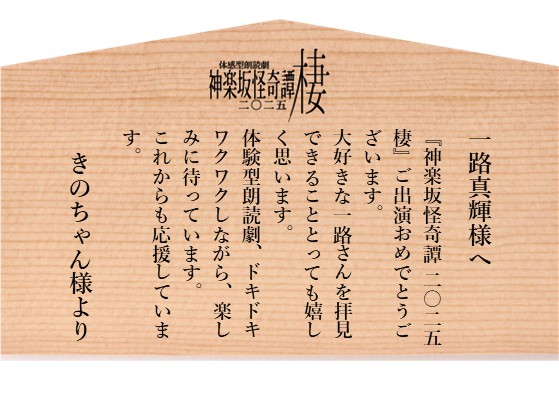 体感型朗読劇
神楽坂怪奇譚
二〇二五
棲
一路真輝様へ
『神楽坂怪奇譚 二〇二五
棲』ご出演おめでとうご
ざいます。
大好きな一路さんを拝見
できることとっても嬉し
く思います。
体験型朗読劇、ドキドキ
ワクワクしながら、楽し
みに待っています。
これからも応援していま
す。
きのちゃん様より